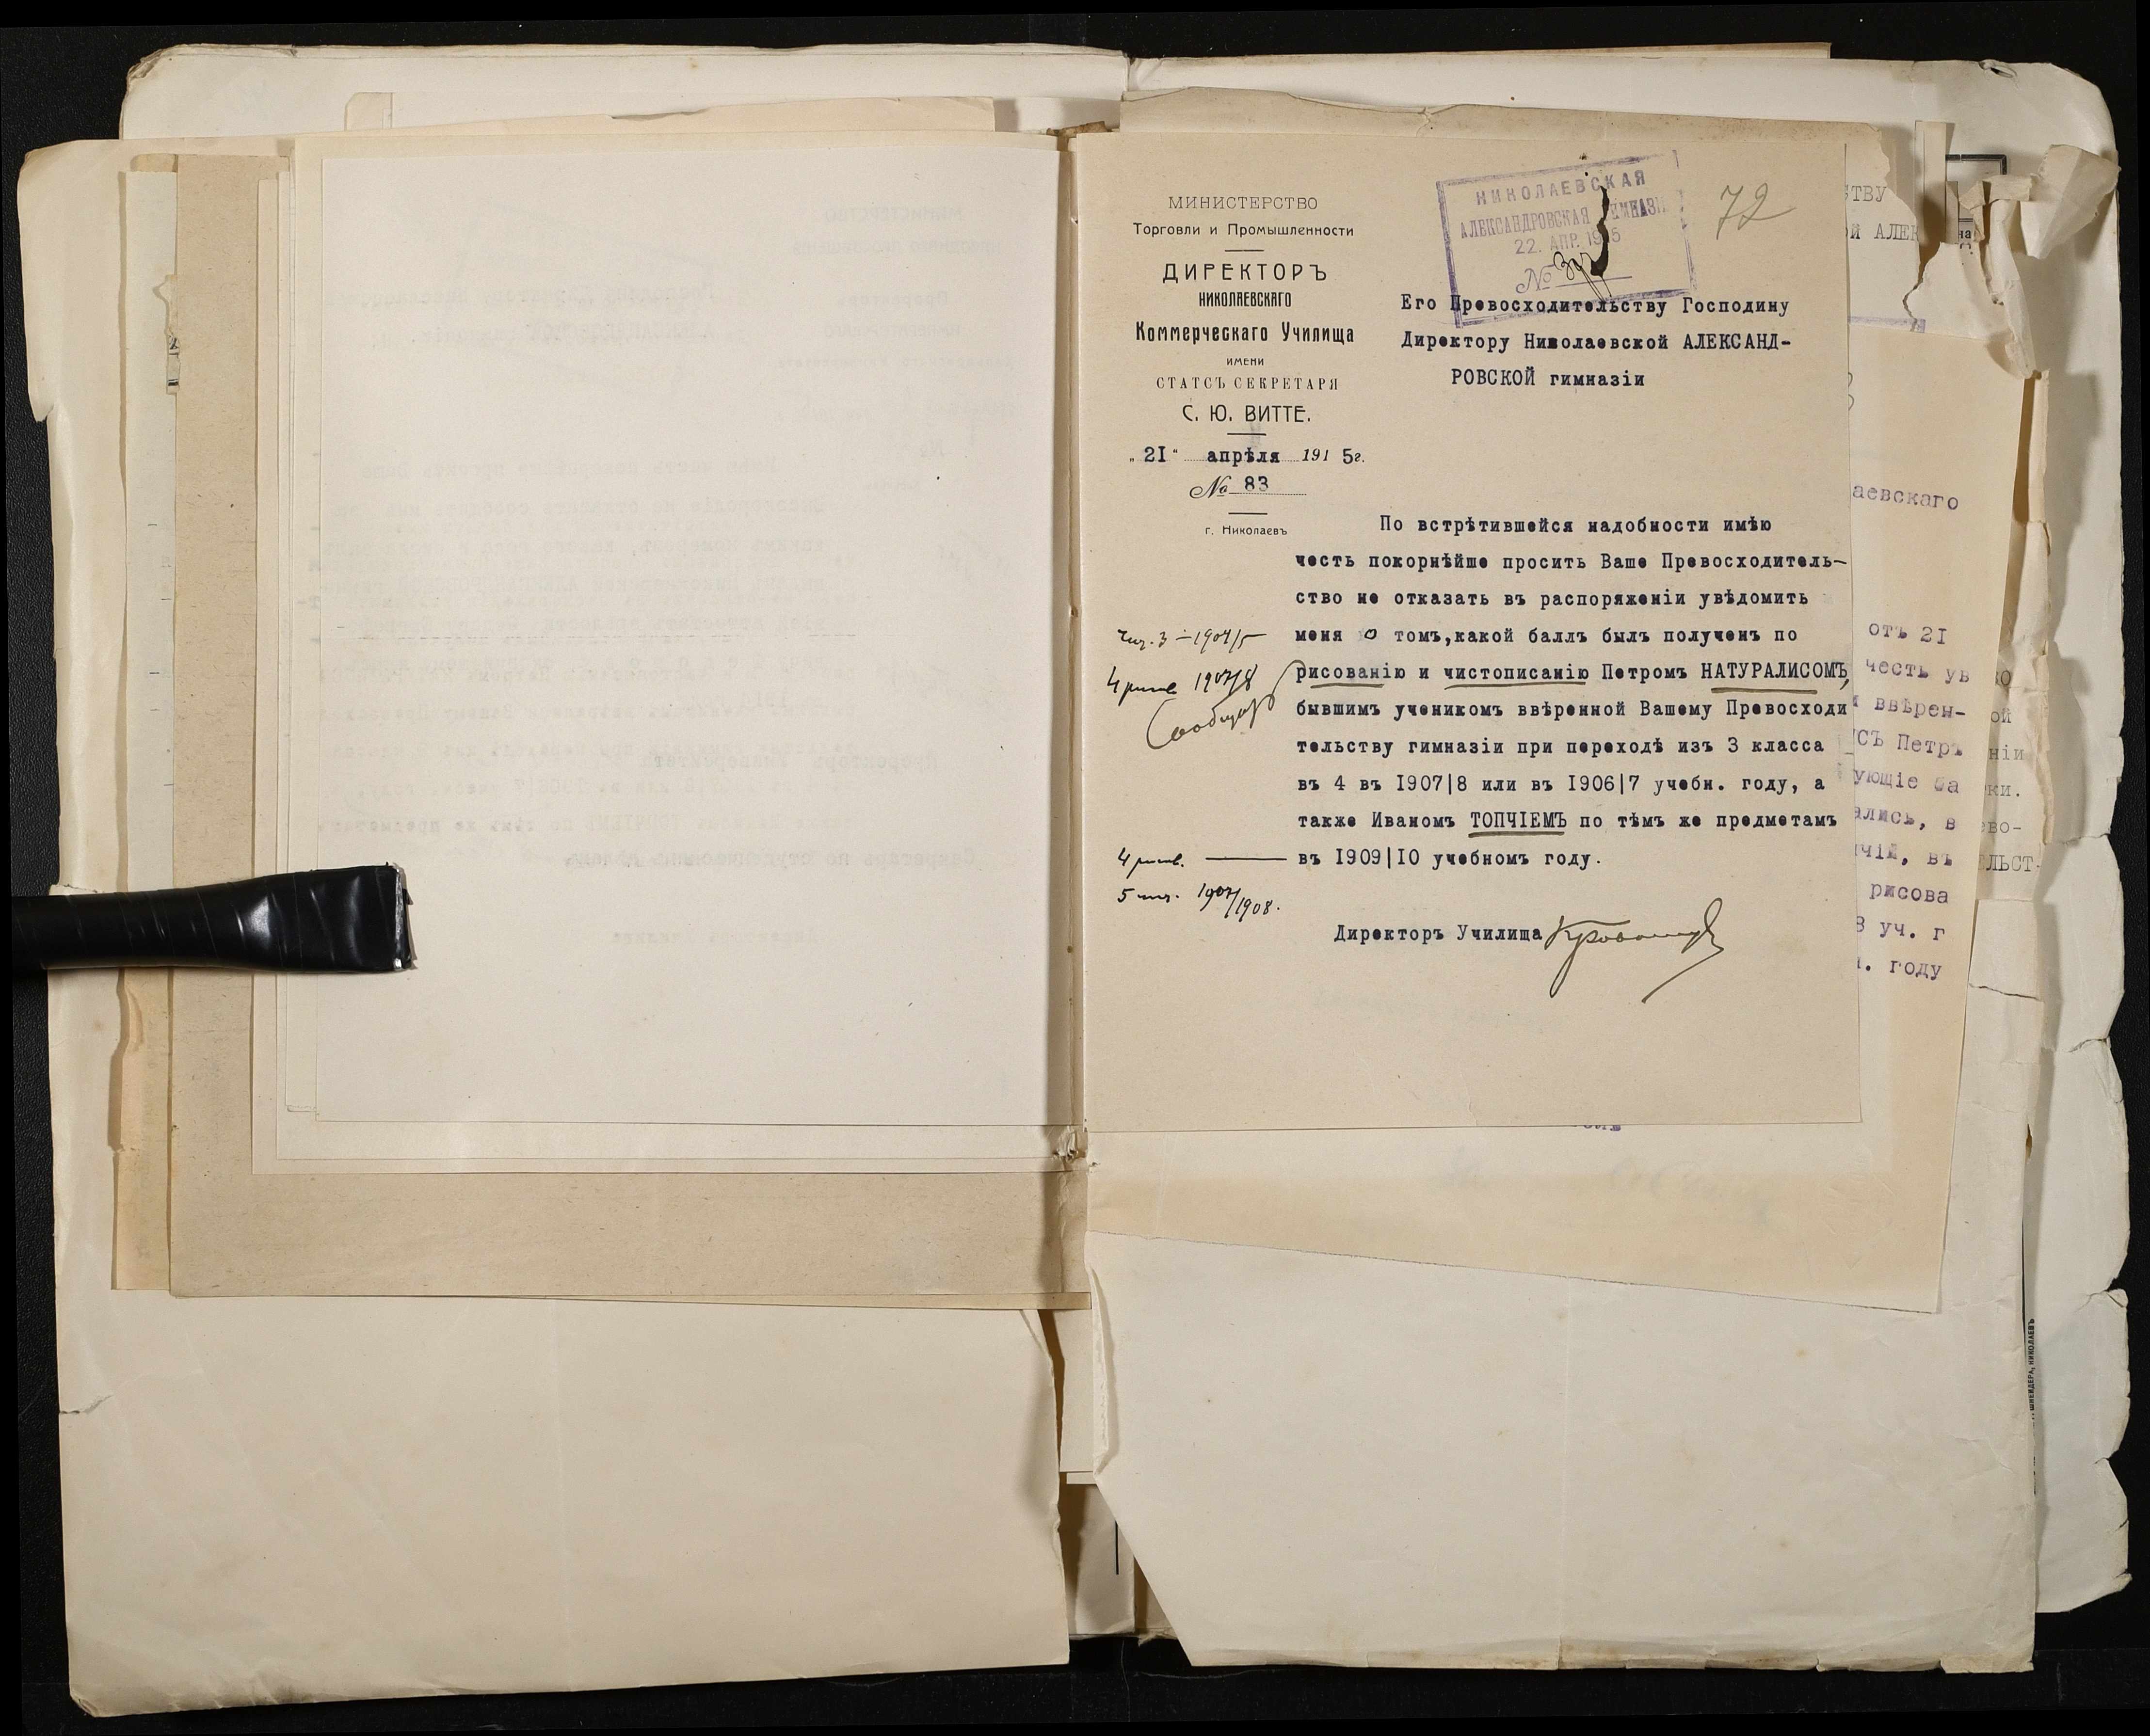 МИНИСТЕРСТВО
Торговли и Промышленности
ДИРЕКТОРЪ
НИКОЛАЕВСКАГО
Коммерческаго Училища
ИМЕНИ
СТАТСЪ СЕКРЕТАРЯ
С. Ю. ВИТТЕ.
„21“ апрѣля 1915г.
№ 83
г. Николаевъ
НИКОЛАЕВСКАЯ
АЛЕКСАНДРОВСКАЯ ГИМНАЗІЯ
22. АПР. 1915
№
72
Его Превосходительству Господину
Директору Николаевской АЛЕКСАНД-
РОВСКОЙ гимназіи
По встрѣтившейся надобности имѣю
честь покорнѣйше просить Ваше Превосходитель-
ство не отказать въ распоряженіи увѣдомить
меня о томъ,какой баллъ былъ полученъ по
рисованію и чистописанію Петромъ НАТУРАЛИСОМЪ,
бывшимъ ученикомъ ввѣренной Вашему Превосходи
тельству гимназіи при переходѣ изъ 3 класса
въ 4 въ 1907|8 или въ 1906|7 учебн. году, а
также Иваномъ ТОПЧІЕМЪ по тѣмъ же предметамъ
въ 1909|10 учебномъ году.
Директоръ Училища
4 1907/8
4 рисов.
5 чис. 1907/1908.
аевскаго
отъ 21
честь ув
ввѣрен-
СЪ Петръ
ующіе ба
ались, в
чій, въ
рисова
8 уч. г
. году